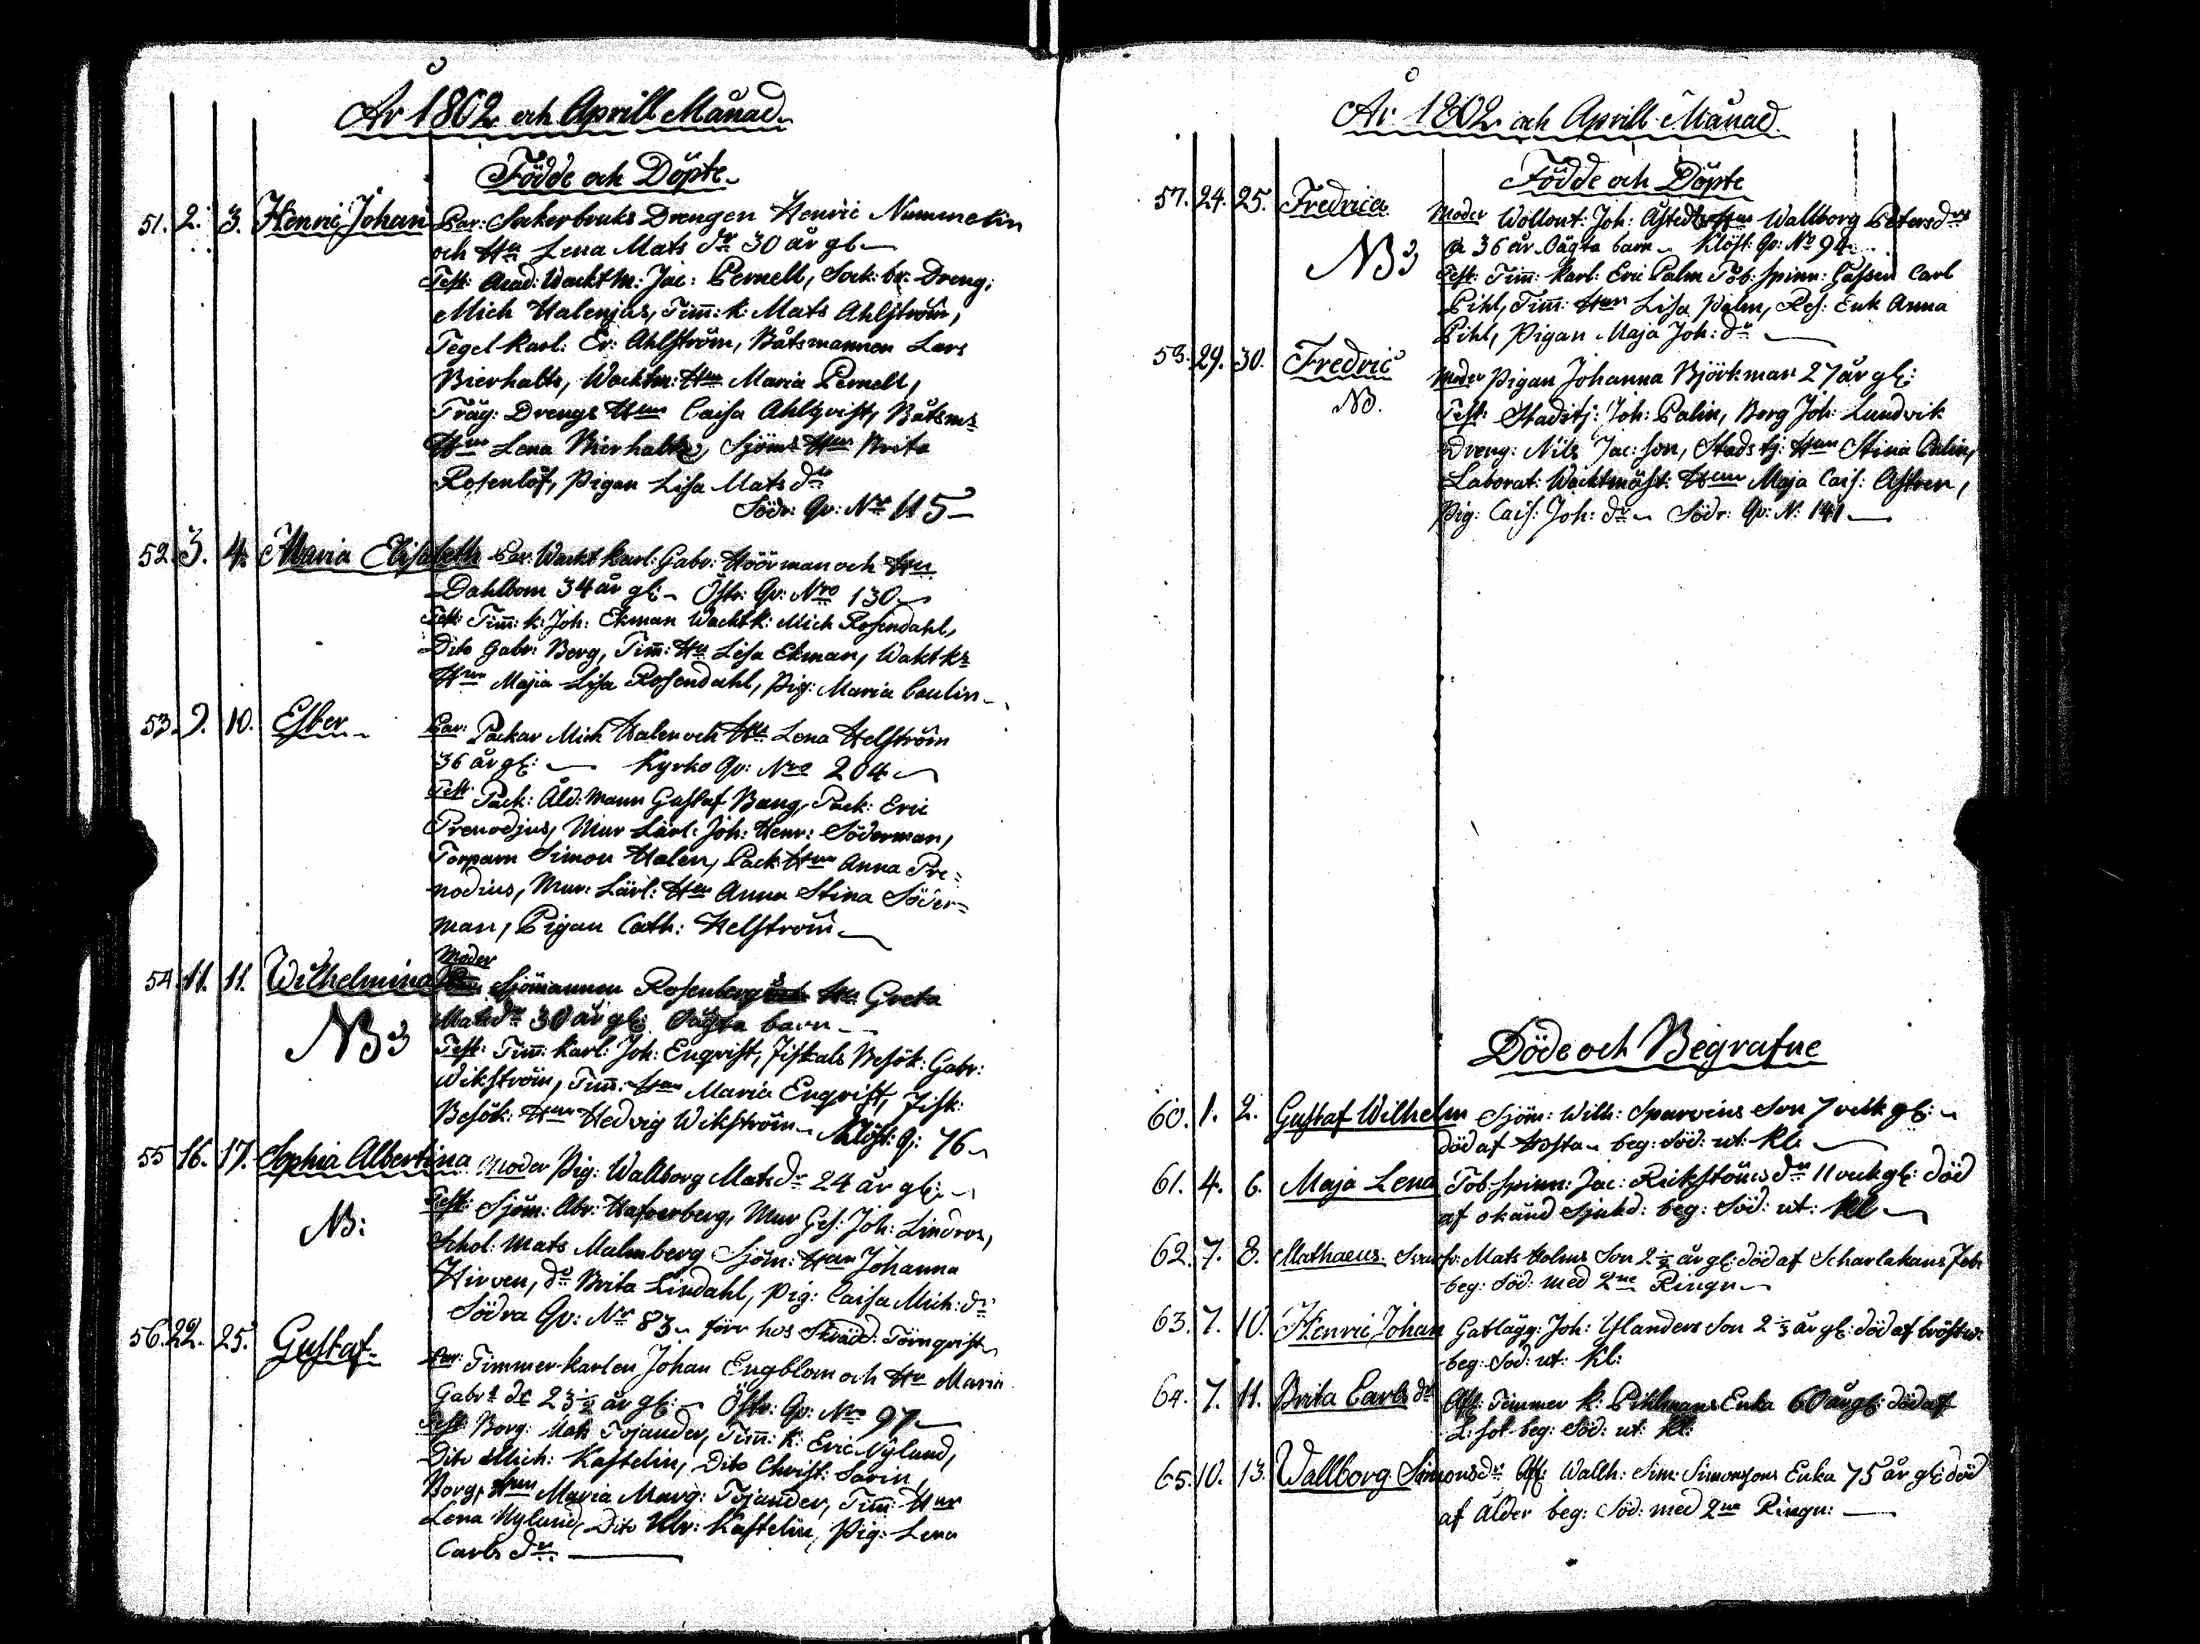 År 1802 och Aprill Månad
Födde och Döpte
51. 2. 3. Henric Johan Par: Sockerbruks Drengen Henric Nummelin
och Hu Lena Mats dr 30 år gl.
Test: Acad: Wacktm: Jac: Pernell, Sock: br: Dreng:
Mich Halenjus, Tim̄: k: Mats Ahlström,
Tegel karl: Er: Ahlström, Båtsmannen Lars
Bierhalts, Wacktm: Hun Maria Pernell,
Träg: Drengs Hun Caisa Ahlqvist, Båtsms
Hun Lena Bierhalts, Sjöms Hun Brita
Rosenlöf, Pigan Lisa Mats dr
Södr: Qv: No 115
52. 3. 4. Maria Elisabeth Par: Wackt karl: Gabr: Höörman och Hu
Dahlbom 34 år gl: Östr: Qv: Nro 130
Test: Tim̄: k: Joh: Ekman Wackt k: Mich Rosendahl,
Dito Gabr: Berg, Tim̄: Hu Lisa Ekman, Wakt ks
Hun Majia Lisa Rosendahl, Pig: Maria Caulin
53. 9. 10. Esber Par: Packar Mich Halen och Hu Lena Helström
36 år gl: Kyrko Qv: Nro 204
Test: Pack: Åld: Mann Gustaf Bang, Pack: Eric
Prenodjus, Mur Lärl: Joh: Henr: Söderman,
Torparn Simon Halen, Pack Hun Anna Pre=
nodius, Mur: Lärl: Hun Anna Stina Söder=
man, Pigan Cath: Helström
Moder
54 11. 11. Wilhelmina Sjömannen Rosenberg Hu Greta
NB Mats dr 30 år gl: Oägta barn
Test: Tim̄: karl: Joh: Enqvist, Fiskals Besök: Gabr:
Wikström, Tim̄: Hun Maria Enqvist, Fisk:
Besök: Hun Hedvig Wikström Klöst: q: 76
55 16. 17. Sophia Albertina Moder Pig: Wallborg Mats dr 24 år gl:
NB: Test: Sjöm: Abr: Haferberg, Mur Ges: Joh: Lindros,
Schol: Mats Malmberg Sjöm: Hun Johanna
Hirven, do Brita Lindahl, Pig: Caisa Mich: dr
Södra Qv: No 83 förr hos Skrädd: Törnqvist
56. 22. 25. Gustaf Par: Timmer karlen Johan Engblom och Hu Maria
Gabr: dr 23 ½ år gl: Östr: Qv: No 97
Test: Borg: Mats Tojander, Tim̄: k: Eric Nylund,
Dito Mich: Kastelin, Dito Christ: Sarin,
Borg: Hun Maria Marg: Tojander, Tim̄: Hun
Lena Nylund, Dito Ulr: Kastelin, Pig: Lena
Carls dr
År 1802 och Aprill Månad
Födde och Döpte
57. 24. 25. Fredrica Moder Wollont: Joh: Åstedts Hun Wallborg Petersdrs
NB a 36 år Oägta barn Klöst: Qv: No 94
Test: Tim̄: karl: Eric Palm Tob: Spinn: Gassen Carl
Pihl, Tim̄: Hun Lisa Palm, Enk Anna
Pihl, Pigan Maja Joh: dr
58. 29. 30. Fredric Moder Pigan Johanna Björkman 27 år gl:
NB. Test: Stadstj: Joh: Palin, Borg Joh: Lundvik
Dreng: Nils Jac: Son, Stads tj: Hun Stina Palin,
Laborat: Wacktmäst: Hun Maja Cais: Astren,
Pig: Cais: Joh: dr Södr: Qv: N: 141
Döde och Begrafne
60. 1. 2. Gustaf Wilhelm Sjöm: Wilh: Sparvins Son 7 veck gl:
död af Hosta beg: Söd: ut: kl:
61. 4. 6. Maja Lena Tob: Spinn: Jac: Rickströms dr 11 veck gl: död
af okänd Sjukd: beg: Söd: ut: kl
62. 7. 8. Mathaeus Mats Holms Son 2 ½ år gl: död af Scharlakans Feb:
beg: Söd: med 2ne Ringn
63. 7. 10. Henric Johan Joh: Ylanders Son 2 ⅓ år gl: död af bröstw:
beg: Söd: ut: kl:
64. 7. 11. Brita Carls dr Aft: Timmer k: Pihlmans Enka 60 år gl: död af
L: sot beg: Söd: ut: kl:
65. 10. 13. Wallborg Simonsdr Aft: Walth: Sim: Simonssons Enka 75 år gl: död
af Ålder beg: Söd: med 2ne Ringn: